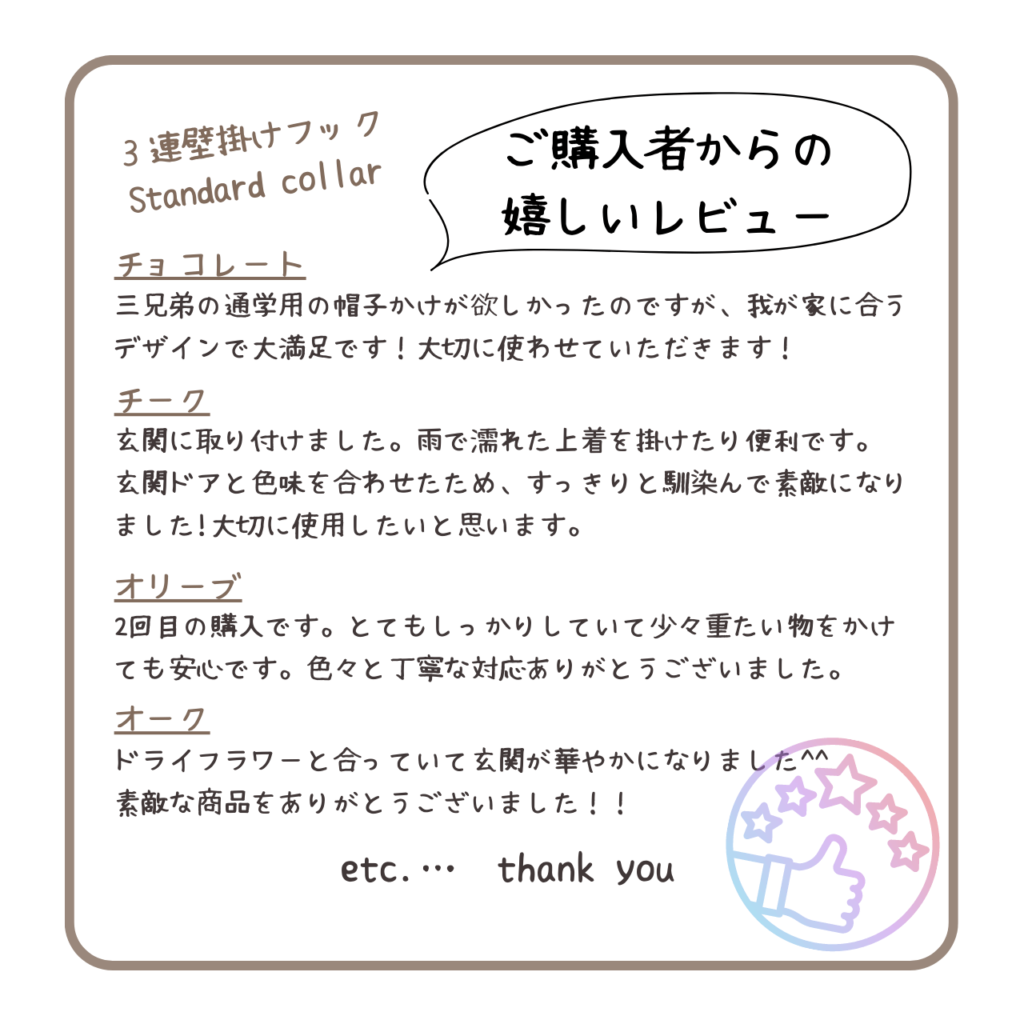 3連壁掛けフック
Standard collar
ご購入者からの
嬉しいレビュー
チョコレート
三兄弟の通学用の帽子かけが欲しかったのですが、我が家に合う
デザインで大満足です！大切に使わせていただきます！
チーク
玄関に取り付けました。雨で濡れた上着を掛けたり便利です。
玄関ドアと色味を合わせたため、すっきりと馴染んで素敵になり
ました!大切に使用したいと思います。
オリーブ
2回目の購入です。とてもしっかりしていて少々重たい物をかけ
ても安心です。色々と丁寧な対応ありがとうございました。
オーク
ドライフラワーと合っていて玄関が華やかになりました^^
素敵な商品をありがとうございました！！
etc.… thank you